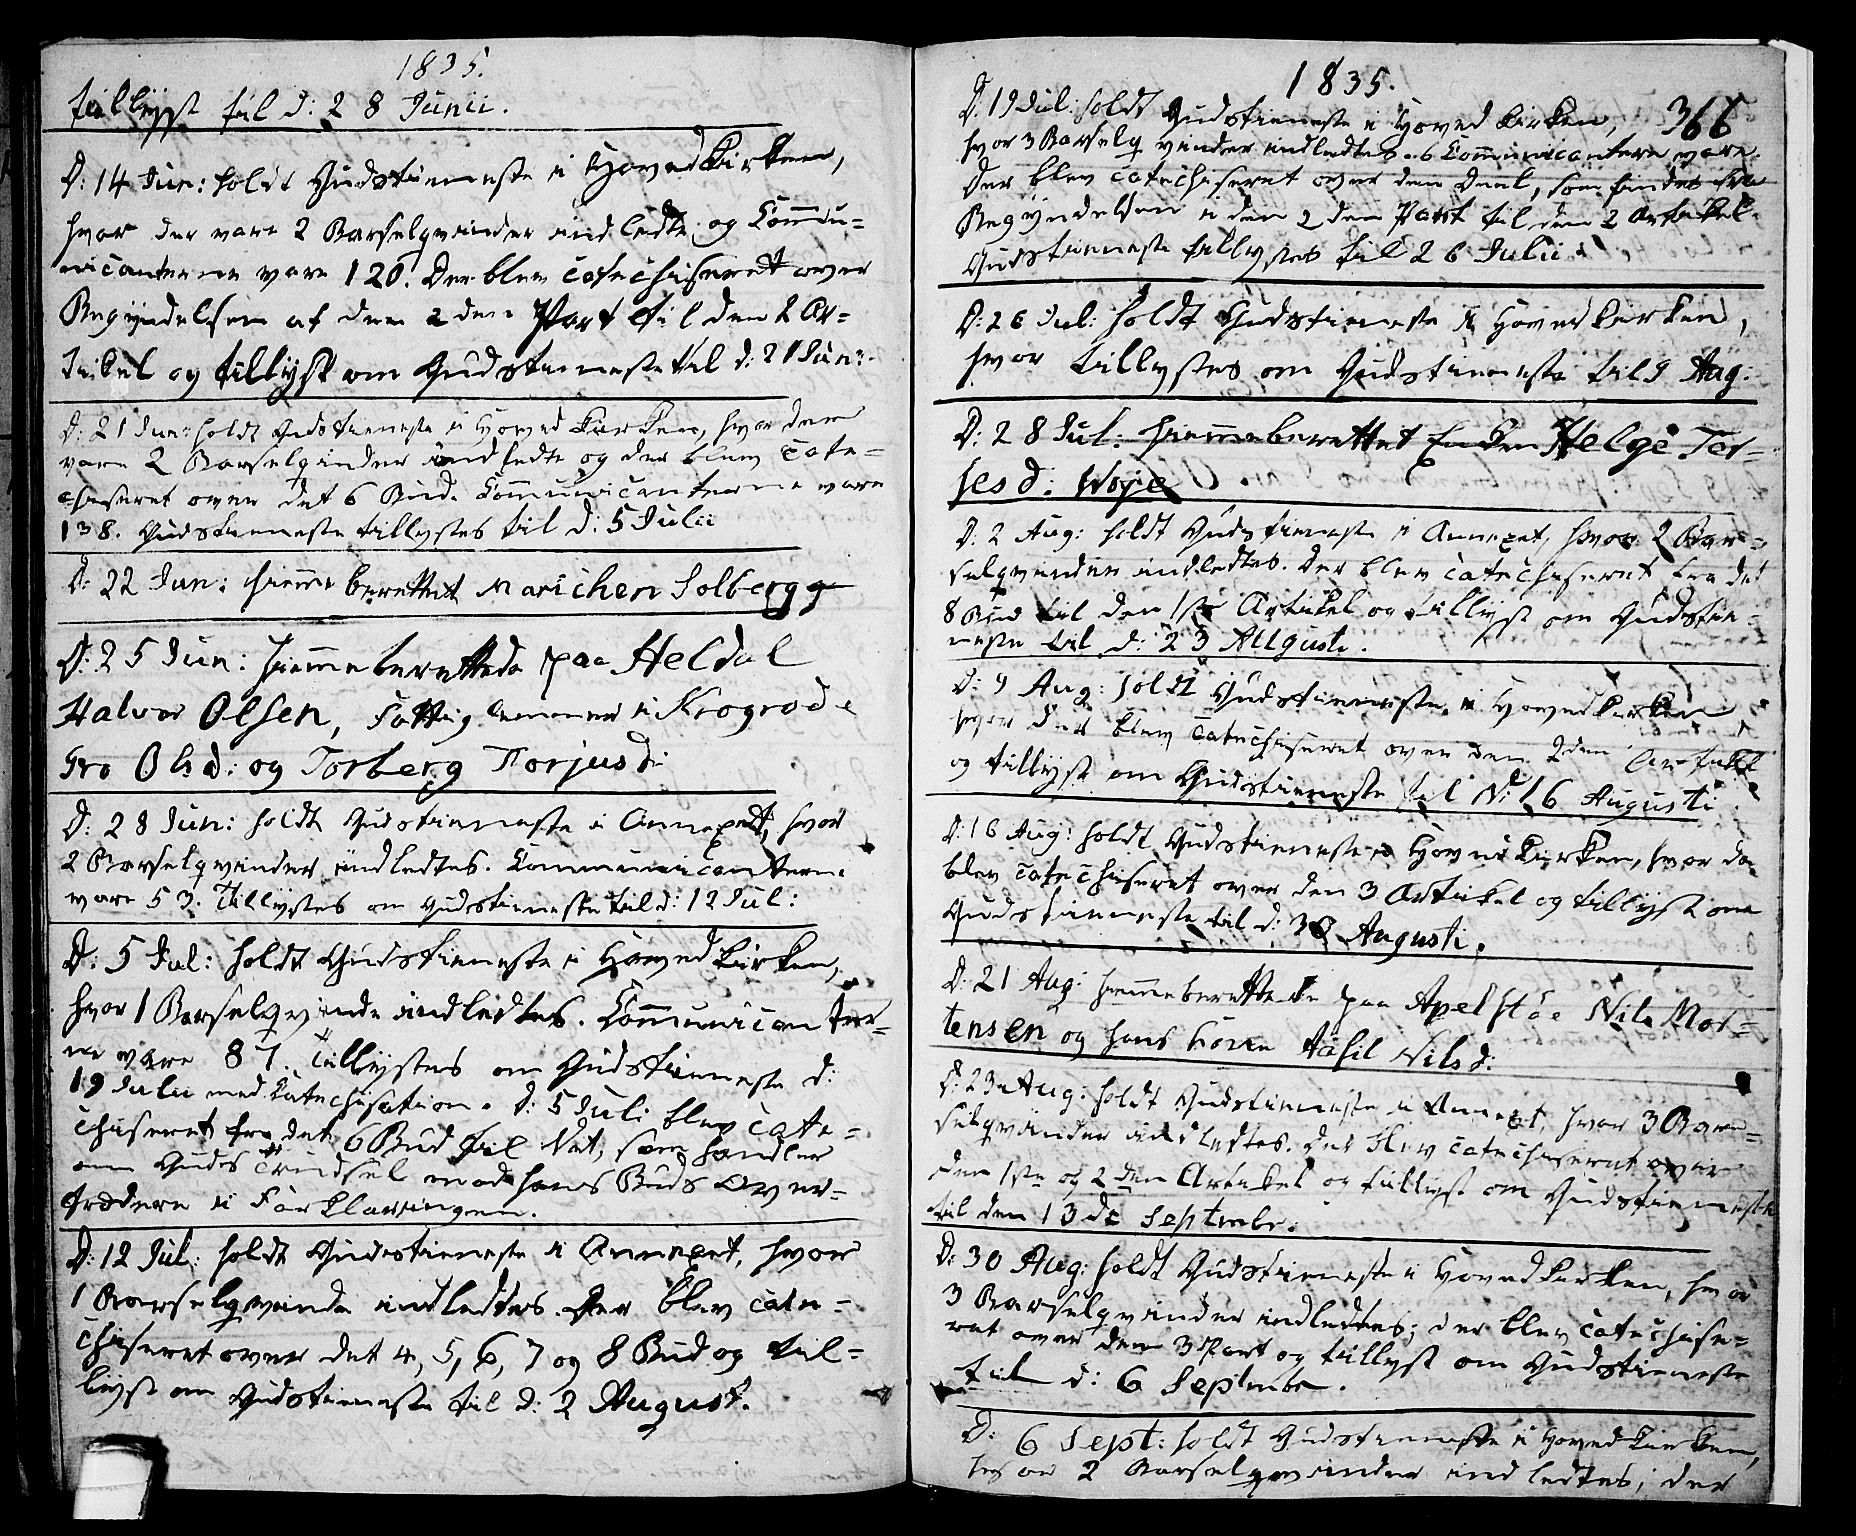 1835.
tillyst til d: 28 Junii.
D: 14 Jun: holdt Gudstieneste i Hovedkirken,
hvor der vare 2 Barselqvinder indledte og Commu-
nicanterne vare 120. Der blev catechiseret over
Begyndelsen af den 2den Part til den 2 Ar-
tikel og tillyst om Gudstieneste til d: 21 Jun:
D: 21 Jun: holdt Gudstieneste i Hovedkirken, hvor der
vare 2 Barselqvinder indledte og der blev cate-
chiseret over det 6 Bud. Communicanterne vare
138. Gudstieneste tillystes til d: 5 Julii
D: 22 Jun: hiemmeberettet Marichen Solberg
D: 25 Jun: hiemmeberettede paa Heldal
Halvor Olsen, Fattiglemmer i Krogrode
Gro Olsd: og Torberg Torjusd:
D: 28 Jun: holdt Gudstieneste i Annexet, hvor
2 Barselqvinder indledtes. Communicanterne
vare 53. Tillystes om Gudstieneste til d: 12 Jul:
D: 5 Jul: holdt Gudstieneste i Hovedkirken,
hvor 1 Barselqvinde indledtes. Communicanter-
ne vare 87. Tillystes om Gudstieneste d:
19 Julii med Catechisation. D: 5 Juli blev cate-
chiseret fra det 6 Bud til det, som handler
om Guds Trudsel mod hans Buds Over-
trædere i Forklaringen.
D: 12 Jul: holdt Gudstieneste i Annexet, hvor
1 Barselqvinde indledtes. Der blev cate-
chiseret over det 4, 5, 6, 7 og 8 Bud og til-
lyst om Gudstieneste til d: 2 August.
1835.
366
D: 19 Jul: holdt Gudstieneste i Hovedkirken,
hvor 3 Barselqvinder indledtes. 6 Communicantere vare.
Der blev catechiseret over den Deel, som findes fra
Begyndelsen i den 2den Part til den 2 Artikel.
Gudstieneste tillystes til 26 Julii.
D: 26 Jul: holdt Gudstieneste i Hovedkirken,
hvor tillystes om Gudstieneste til 9 Aug:
D: 28 Jul: hiemmeberettet Enken Helge Ter-
jesd: Woje
D: 2 Aug: holdt Gudstieneste i Annexet, hvor 2 Bar-
selqvinder indledtes. Der blev catechiseret fra det
8 Bud til den 1ste Artikel og tillyst om Gudstie-
neste til d: 23 Augusti.
D: 9 Aug: holdt Gudstieneste i Hovedkirken
hvor der blev catechiseret over den 2den Artikel
og tillyst om Gudstieneste til d: 16 Augusti.
D: 16 Aug: holdt Gudstieneste i Hovedkirken, hvor der
blev catechiseret over den 3 Artikel og tillyst om
Gudstieneste til d: 30 Augusti.
D: 21 Aug: hiemmeberettede paa Apelstöe Nils Mor-
tensen og hans Kone Aasil Nilsd:
D: 23 Aug: holdt Gudstieneste i Annexet, hvor 3 Bar-
selqvinder indledtes. Der blev catechiseret over
den 1ste og 2den Artikel og tillyst om Gudstieneste
til den 13de Septembr.
D: 30 Aug: holdt Gudstieneste i Hovedkirken, hvor
3 Barselqvinder indledtes; der blev catechise-
ret over den 3 Part og tillyst om Gudstieneste
til d: 6 Septembr.
D: 6 Sept: holdt Gudstieneste i Hovedkirken,
hvor 2 Barselqvinder indledtes; der